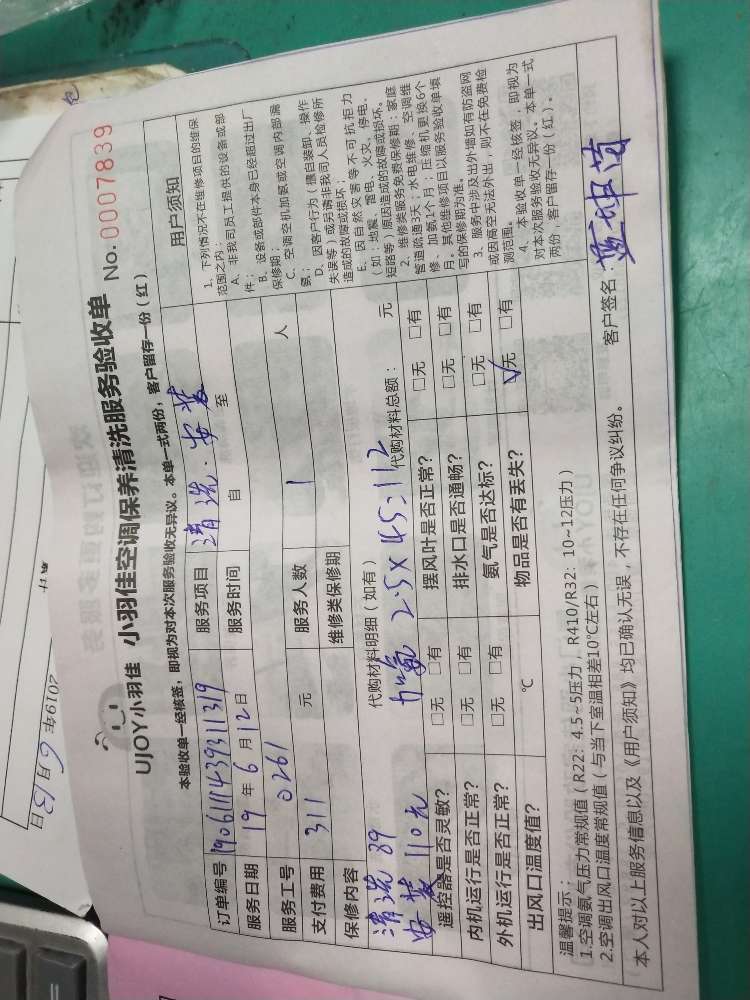 UJOY小羽佳 小羽佳空调保养清洗服务验收单 No. 0007839
本验收单一经核签，即视为对本次服务验收无异议。本单一式两份，客户留存一份（红）
订单编号 190611143931 1319 服务项目 清洗·安装
服务日期 19 年 6 月 12 日 服务时间 自 至
服务工号 0261 服务人数 1 人
支付费用 311 元 维修类保修期
保修内容
清洗 89 代购材料明细（如有） 代购材料总额： 元
安装 110元 加氨 2.5×45=112
遥控器是否灵敏？ □无 □有 摆风叶是否正常？ □无 □有
内机运行是否正常？ □无 □有 排水口是否通畅？ □无 □有
外机运行是否正常？ □无 □有 氨气是否达标？ □无 □有
出风口温度值？ ℃ 物品是否有丢失？ ☑无 □有
用户须知
1、下列情况不在维修项目的维保
范围之内：
A、非我司员工提供的设备或部
件；
B、设备或部件本身已经超过出厂
保修期；
C、空调空机加氨或空调内部漏
氨；
D、因客户行为（擅自装卸、操作
失误等）或另请非我司人员检修所
造成的故障或损坏；
E、因自然灾害等不可抗拒力
（如：地震、雷电、火灾、停电、
短路等）原因造成的故障或损坏。
2、维修类服务免费保修期：家庭
管道疏通3天；水电维修、空调维
修、加氨1个月；压缩机更换6个
月。其他维修项目以服务验收单填
写的保修期为准。
3、服务中涉及出外墙如有防盗网
或因高空无法外出，则不在免费检
测范围。
4、本验收单一经核签，即视为
对本次服务验收无异议。本单一式
两份，客户留存一份（红）。
温馨提示：
1.空调氨气压力常规值（R22：4.5~5压力，R410/R32：10~12压力）
2.空调出风口温度常规值（与当下室温相差10℃左右）
本人对以上服务信息以及《用户须知》均已确认无误，不存在任何争议纠纷。 客户签名：
2019年6月13日